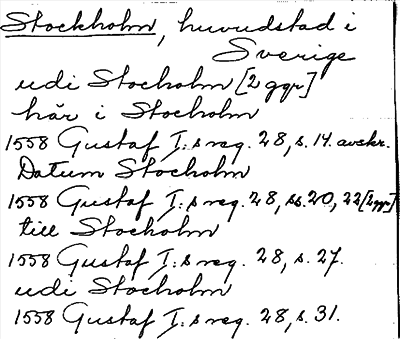 Stockholm, huvudstad i
Sverige
udi Stocholm [2 ggr]
här i Stocholm
1558 Gustaf I:s reg. 28, s. 14. avskr.
Datum Stocholm
1558 Gustaf I:s reg. 28, ss. 20, 22 [2 ggr]
till Stocholm
1558 Gustaf I:s reg. 28, s. 27.
udi Stocholm
1558 Gustaf I:s reg. 28, s. 31.